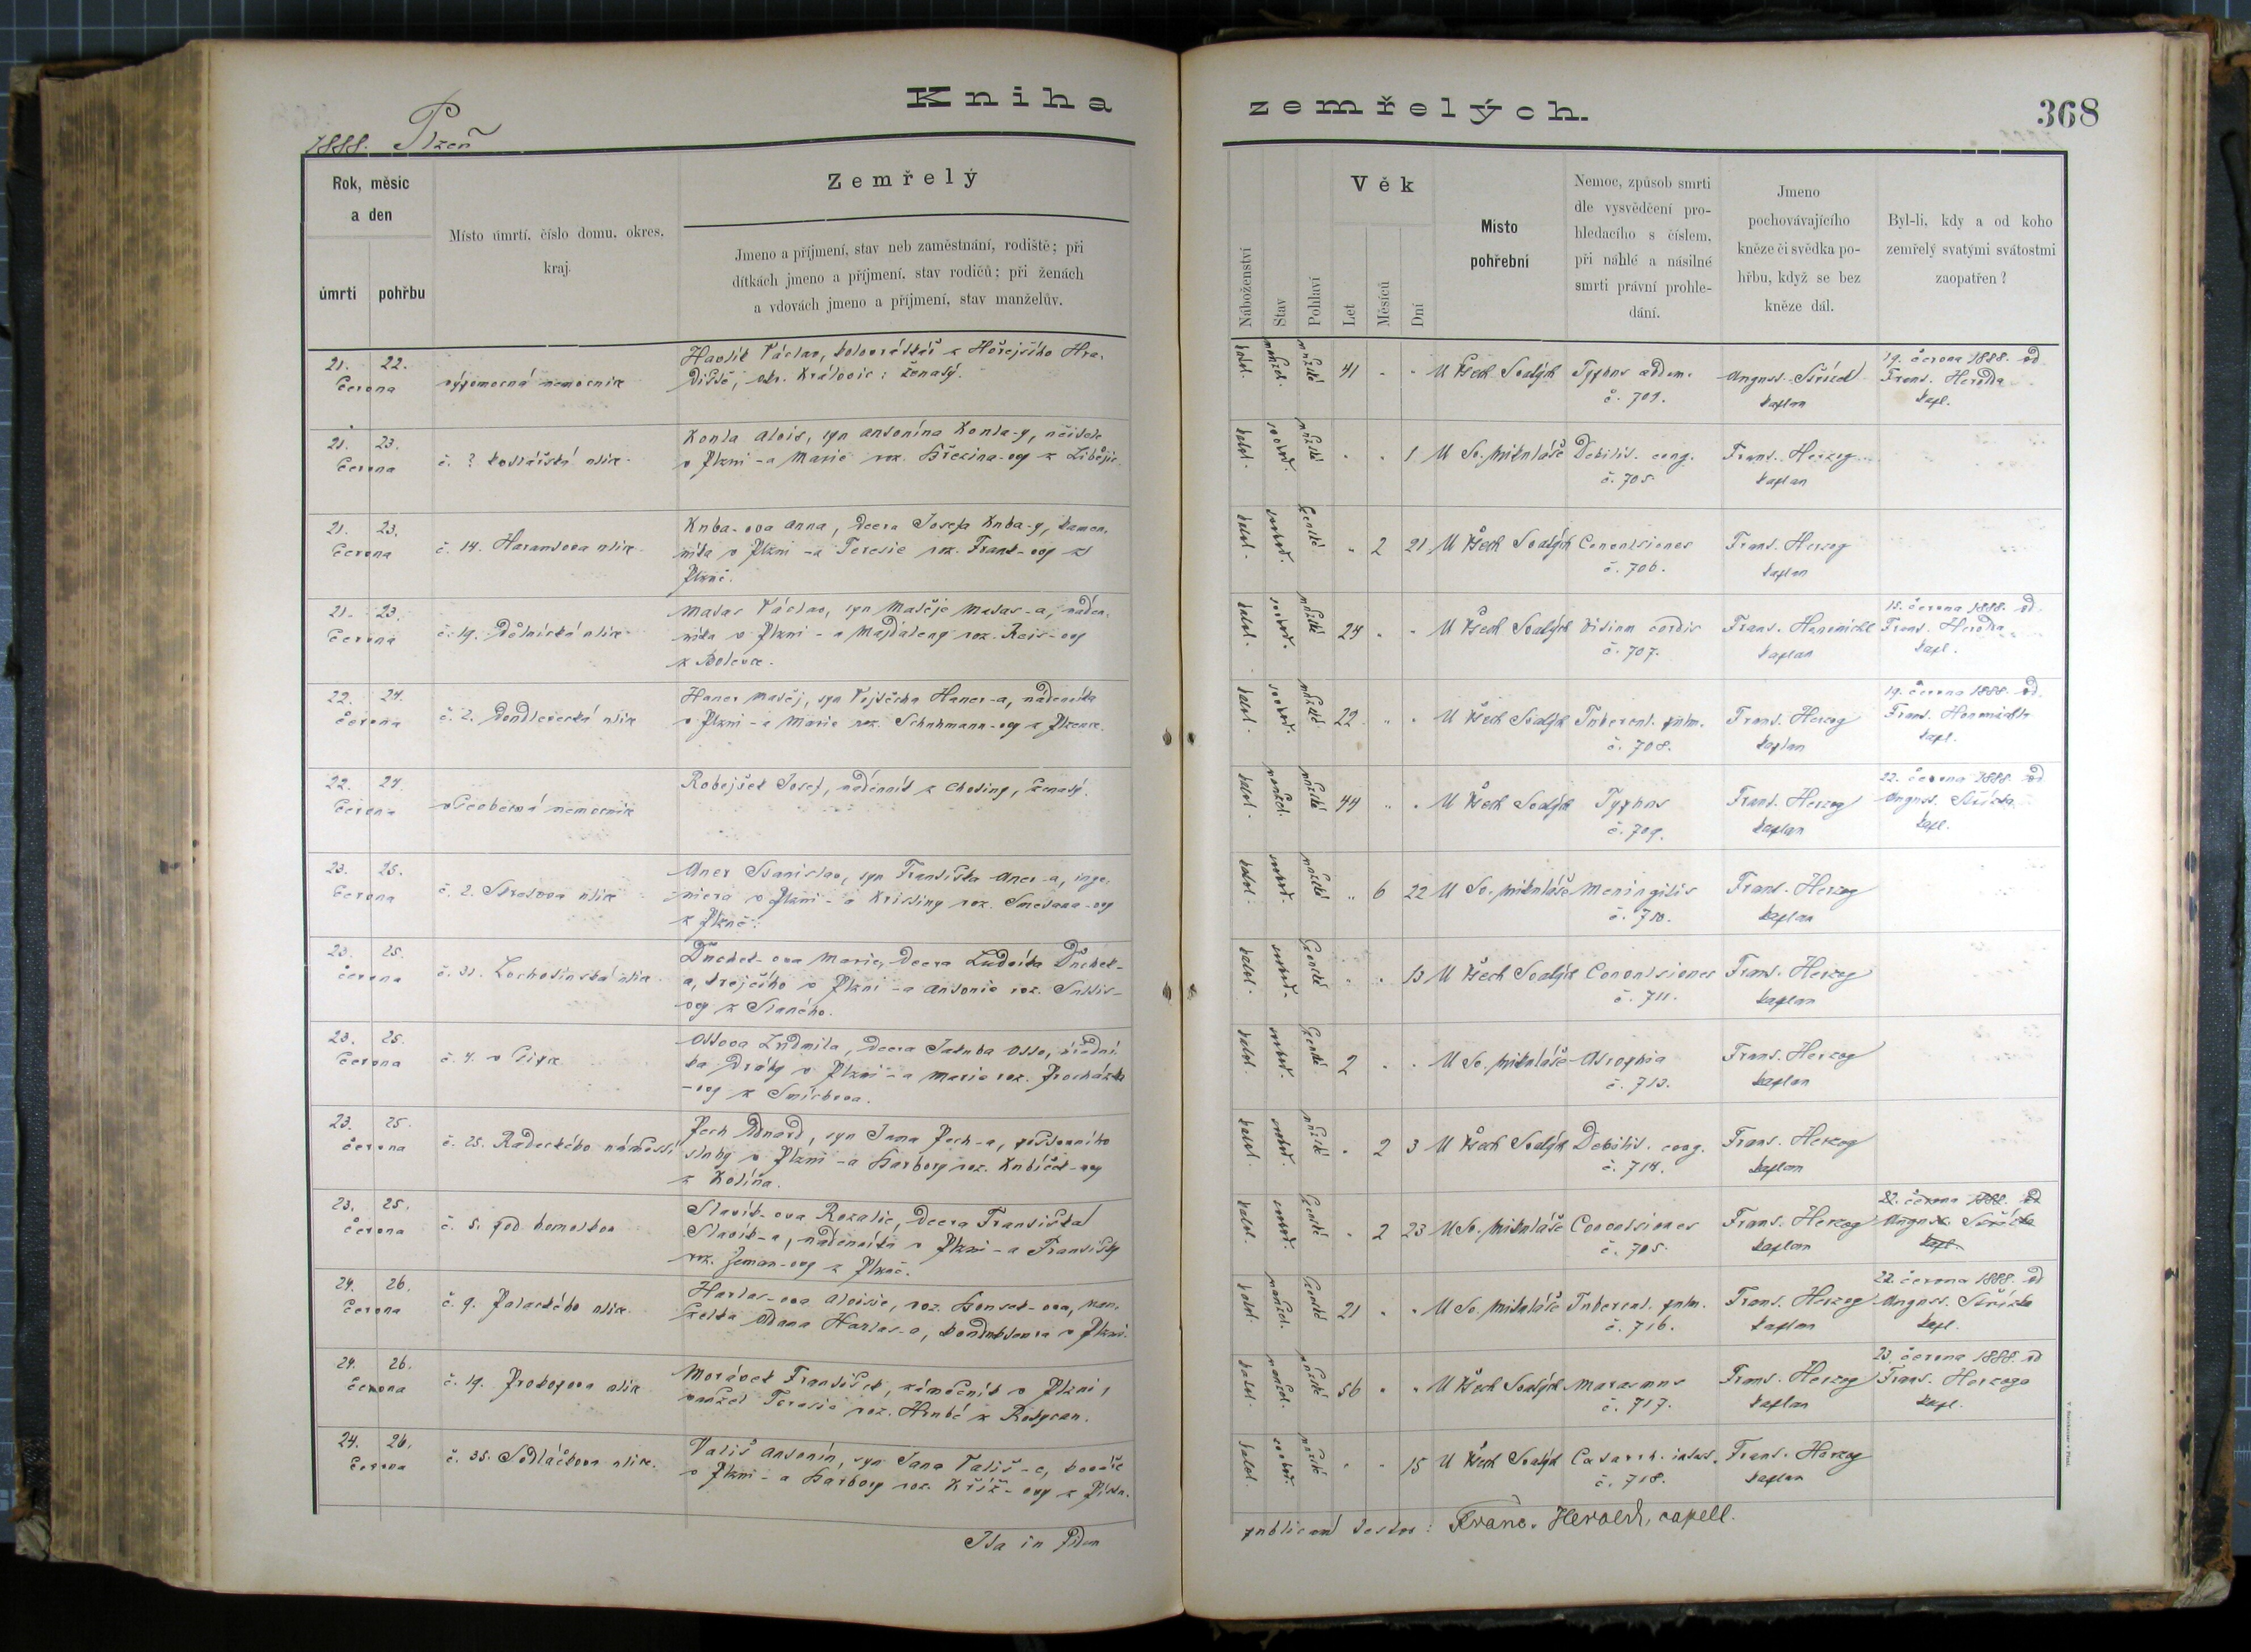 Kniha zemřelých.
368
1888. Plzeň
Rok, měsíc a den
úmrtí
pohřbu
Místo úmrtí, číslo domu, okres, kraj.
Zemřelý
Jmeno a příjmení, stav neb zaměstnání, rodiště; při
dítkách jmeno a příjmení, stav rodičů; při ženách
a vdovách jmeno a příjmení, stav manželův.
Náboženství
Stav
Pohlaví
Věk
Let
Měsíců
Dní
Místo
pohřební
Nemoc, způsob smrti
dle vysvědčení pro-
hledacího s číslem,
při náhlé a násilné
smrti právní prohle-
dání.
Jmeno
pochovávajícího
kněze či svědka po-
hřbu, když se bez
kněze dál.
Byl-li, kdy a od koho
zemřelý svatými svátostmi
zaopatřen?
21. 22.
června
výpomocná nemocnice
Havlík Václav, kolovrátkář z Hořejšího Hra-
diště, okr. Královic: ženatý.
katol. manžel. mužské 41 U Všech Svatých Typhus abdom.
č. 701.
August. Střízek
kaplan
19. června 1888. od
Franc. Herolda
kapl.
21. 23.
června
č. ? kotlářská ulice
Konla Alois, syn Antonína Konla-y, učitele
v Plzni - a Marie roz. Březina-ovy z Libějic.
katol. svobod. mužské 1 U Sv. Mikuláše Debilit. cong.
č. 705.
Frant. Herzog
kaplan
21. 23.
června
č. 14. Harantova ulice
Kuba-ova Anna, dcera Josefa Kuba-y, kamen-
níka v Plzni - a Terezie roz. Frant-ovy z
Plzně.
katol. svobod. ženské 2 21 U Všech Svatých Convulsiones
č. 706.
Frant. Herzog
kaplan
21. 23.
června
č. 19. Dělnická ulice
Matas Václav, syn Matěje Matas-a, náden-
níka v Plzni - a Majdaleny roz. Reis-ovy
z Bolevce.
katol. svobod. mužské 24 U Všech Svatých Vitium cordis
č. 707.
kaplan
15. června 1888. od
Franc. Herolda
kapl.
22. 24.
června
č. 2. Doudlevecká ulice
Haner Matěj, syn Vojtěcha Haner-a, nádeníka
v Plzni - a Marie roz. Schuhmann-ovy z Plzence.
katol. svobod. mužské 22 U Všech Svatých Tubercul. pulm.
č. 708.
Frant. Herzog
kaplan
19. června 1888. od
kapl.
22. 24.
června
všeobecná nemocnice
Robejšek Josef, nádenník z Chotiny, ženatý.
katol. manžel. mužské 44 U Všech Svatých Typhus
č. 709.
Frant. Herzog
kaplan
22. června 1888 od
August. Střízka
kapl.
23. 25.
června
č. 2. ulice
Auer Stanislav, syn Františka Auer-a, inže-
niera v Plzni - a Kristiny roz. Smetana-ovy
z Plzně.
katol. svobod. mužské 6 22 U Sv. Mikuláše Meningitis
č. 710.
Frant. Herzog
kaplan
23. 25.
června
č. 31. Lochotínská ulice
Duchek-ova Marie, dcera Ludvíka Duchek-
a, krejčího v Plzni - a Antonie roz.
-ovy z Slaného.
katol. svobod. ženské 13 U Všech Svatých Convulsiones
č. 711.
Frant. Herzog
kaplan
23. 25.
června
č. 4. v Cípě
Ottova Ludmila, dcera Jakuba Otto, úřední-
ka dráhy v Plzni - a Marie roz. Procházka
-ovy z Smíchova.
katol. svobod. ženské 2 U Sv. Mikuláše Atrophia
č. 713.
Frant. Herzog
kaplan
23. 25.
června
č. 25. Radeckého náměstí
Pech Eduard, syn Jana Pech-a, poštovního
sluhy v Plzni - a Barbory roz. Kubíček-ovy
z Kolína.
katol. svobod. mužské 2 3 U Všech Svatých Debilit. cong.
č. 714.
Frant. Herzog
kaplan
23. 25.
června
č. 5. pod homolkou
Slavík-ova Rozalie, dcera Františka
Slavík-a, nádenníka v Plzni - a Františky
roz. Zeman-ovy z Plzně.
katol. svobod. ženské 2 23 U Sv. Mikuláše Convulsiones
č. 705.
Frant. Herzog
kaplan
22. června 1888. od
August. Střízka
kapl.
24. 26.
června
č. 9. Palackého ulice
Harlas-ova Aloisie, roz. -ova, man-
želka Adama Harlas-a, konduktora v Plzni.
katol. manžel. ženské 21 U Sv. Mikuláše Tubercul. pulm.
č. 716.
Frant. Herzog
kaplan
22. června 1888. od
August. Střízka
kapl.
24. 26.
června
č. 19. Prokopova ulice
Morávek František, zámečník v Plzni,
manžel Terezie roz. Hrubé z Rokycan.
katol. manžel. mužské 56 U Všech Svatých Marasmus
č. 717.
Frant. Herzog
kaplan
23. června 1888 od
Frant. Herzoga
kapl.
24. 26.
června
č. 35. Sedláčkova ulice.
Vališ Antonín, syn Jana Vališ-e, kováře
v Plzni - a Barbory roz. Kříž-ovy z Písku.
katol. svobod. mužské 15 U Všech Svatých Catarrh. intest.
č. 718.
Frant. Herzog
kaplan
Ita in fidem
publicam testor: Franc. Herold, capell.